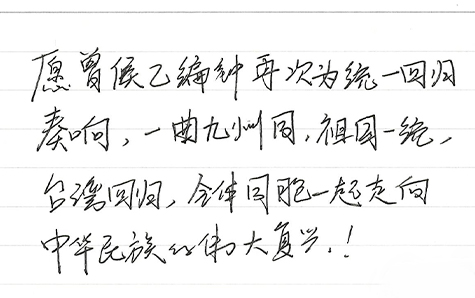 愿曾侯乙编钟再次为统一回归
奏响，一曲九州同，祖国一统，
台湾回归，全体同胞一起走向
中华民族的伟大复兴！